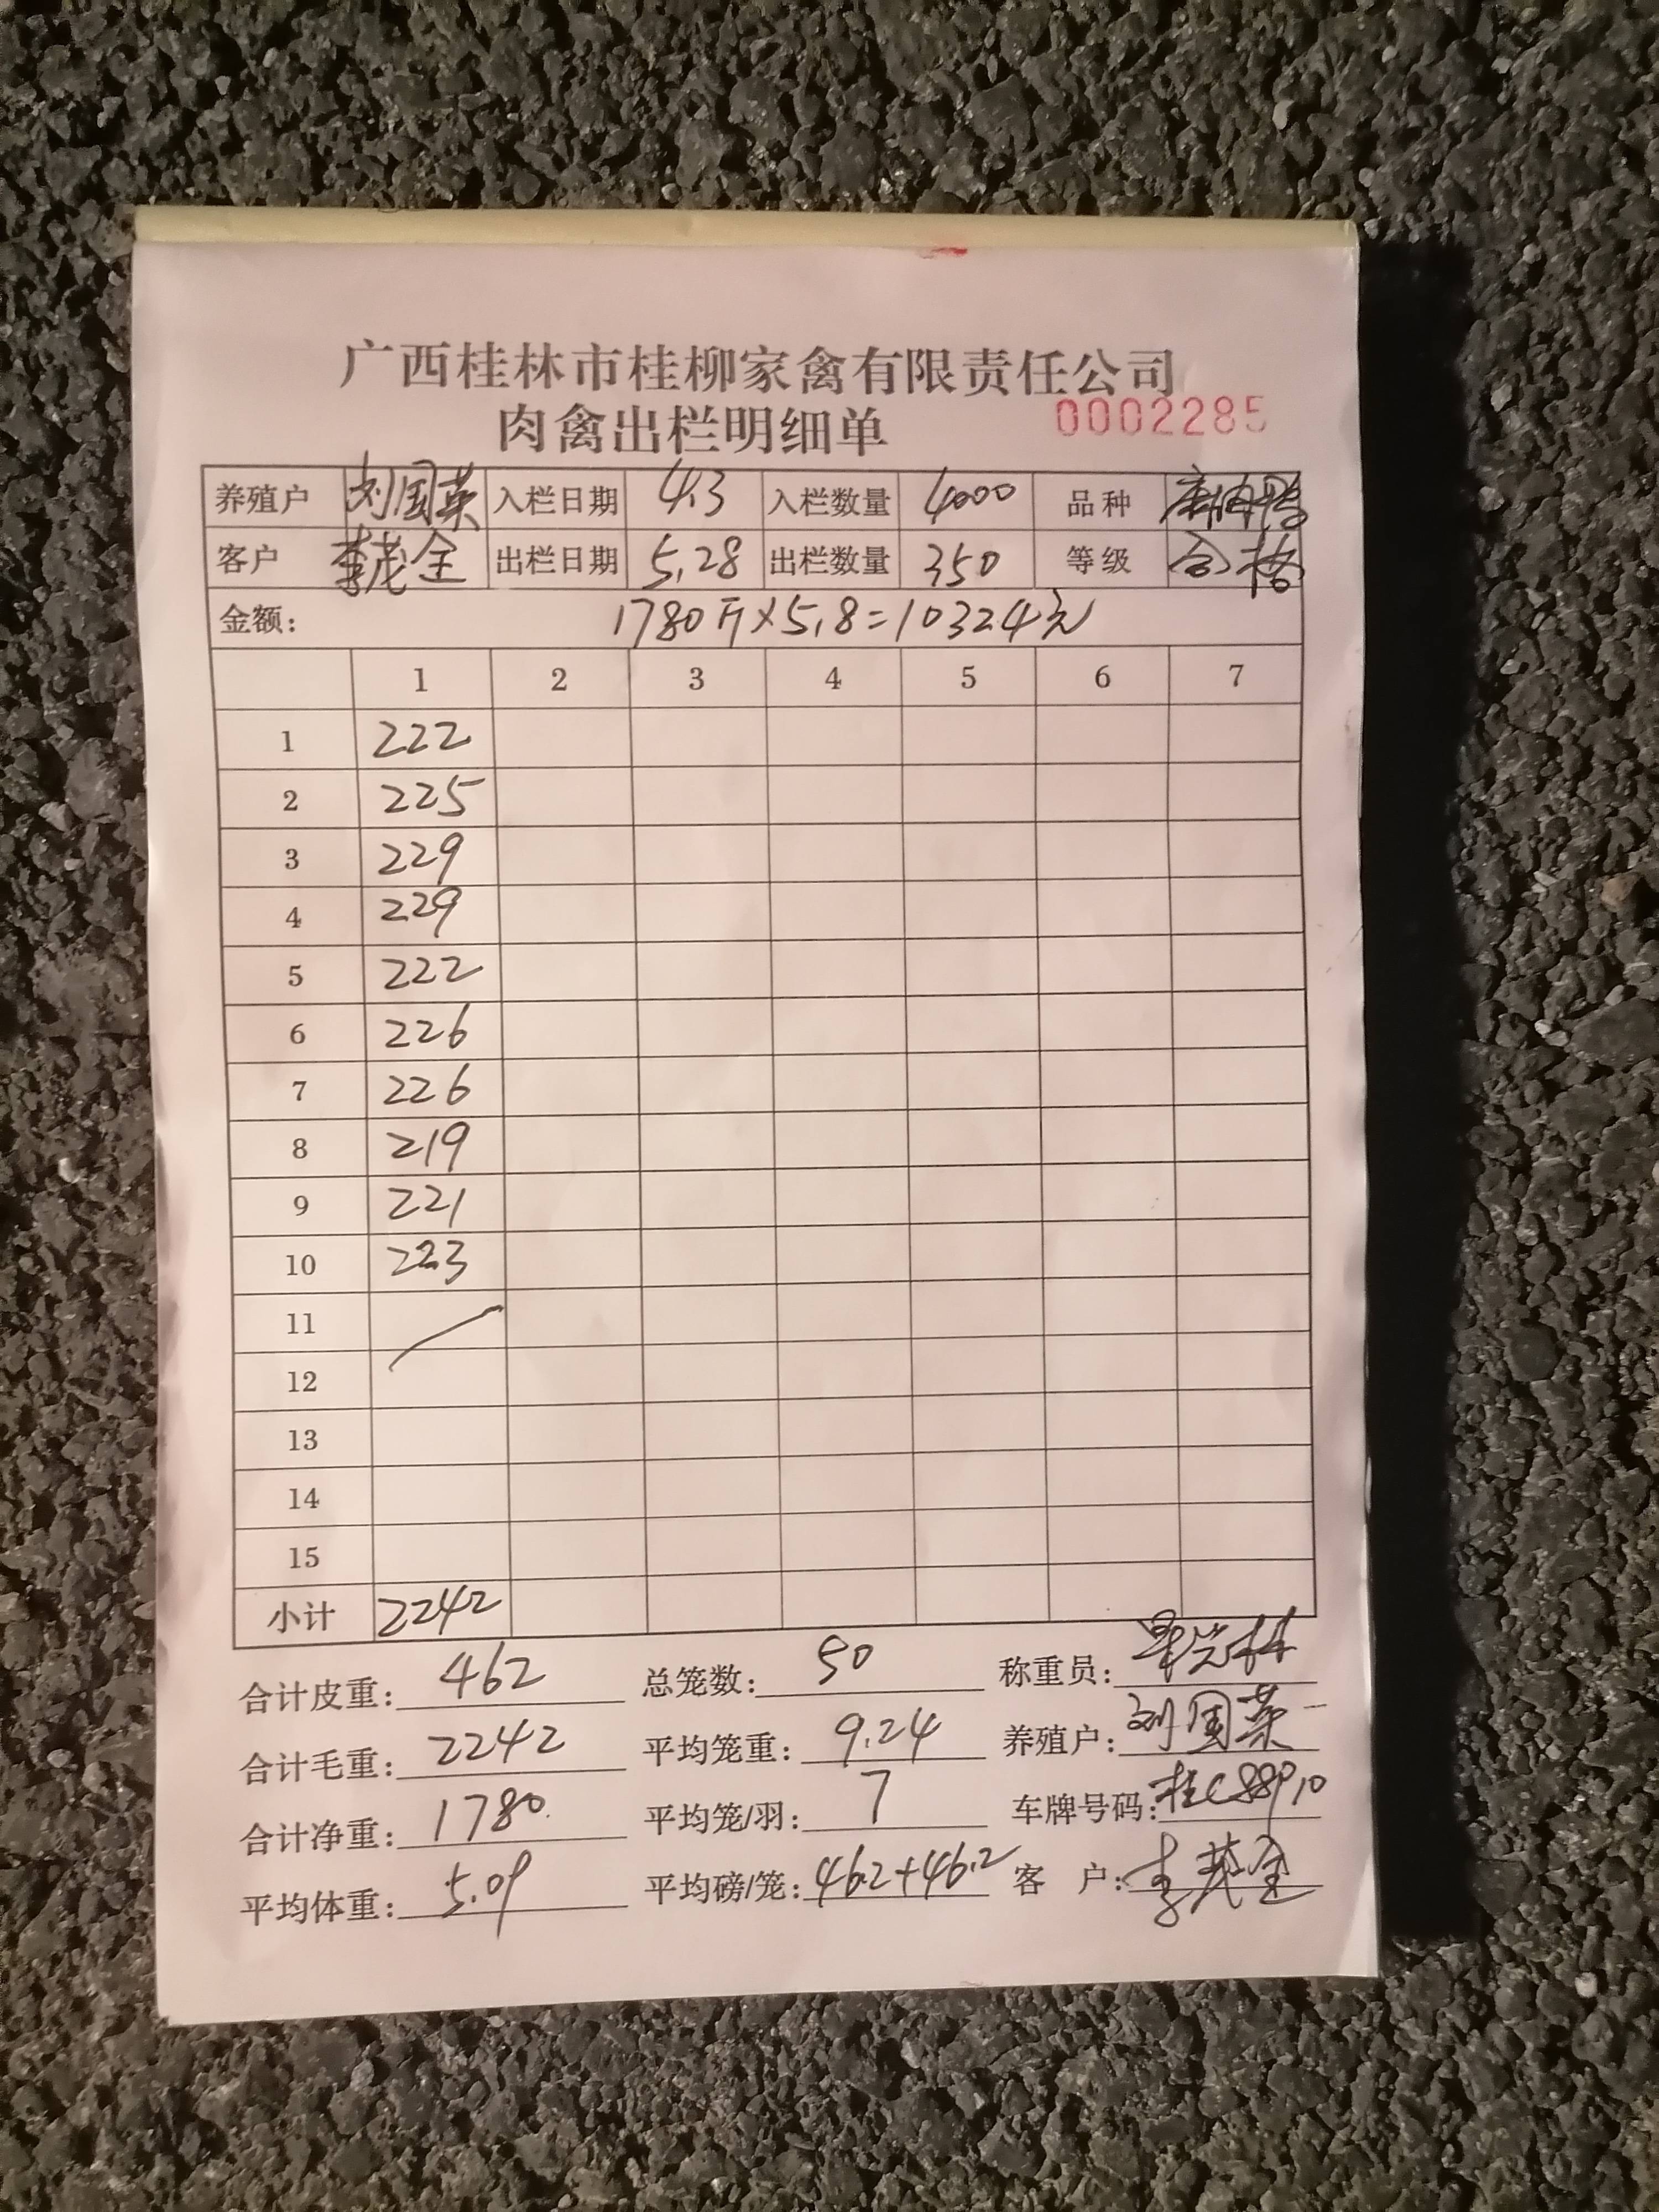 广西桂林市桂柳家禽有限责任公司
肉禽出栏明细单 0002285
养殖户 刘国英 入栏日期 4.3 入栏数量 4000 品种
客户 李茂全 出栏日期 5.28 出栏数量 350 等级 合格
金额: 1780斤×5.8=10324元
1 2 3 4 5 6 7
1 222
2 225
3 229
4 229
5 222
6 226
7 226
8 219
9 221
10 223
11
12
13
14
15
小计 2242
合计皮重: 462 总笼数: 50 称重员:
合计毛重: 2242 平均笼重: 9.24 养殖户: 刘国英
合计净重: 1780 平均笼/羽: 7 车牌号码:
平均体重: 5.09 平均磅/笼: 46.2+46.2 客 户: 李茂全